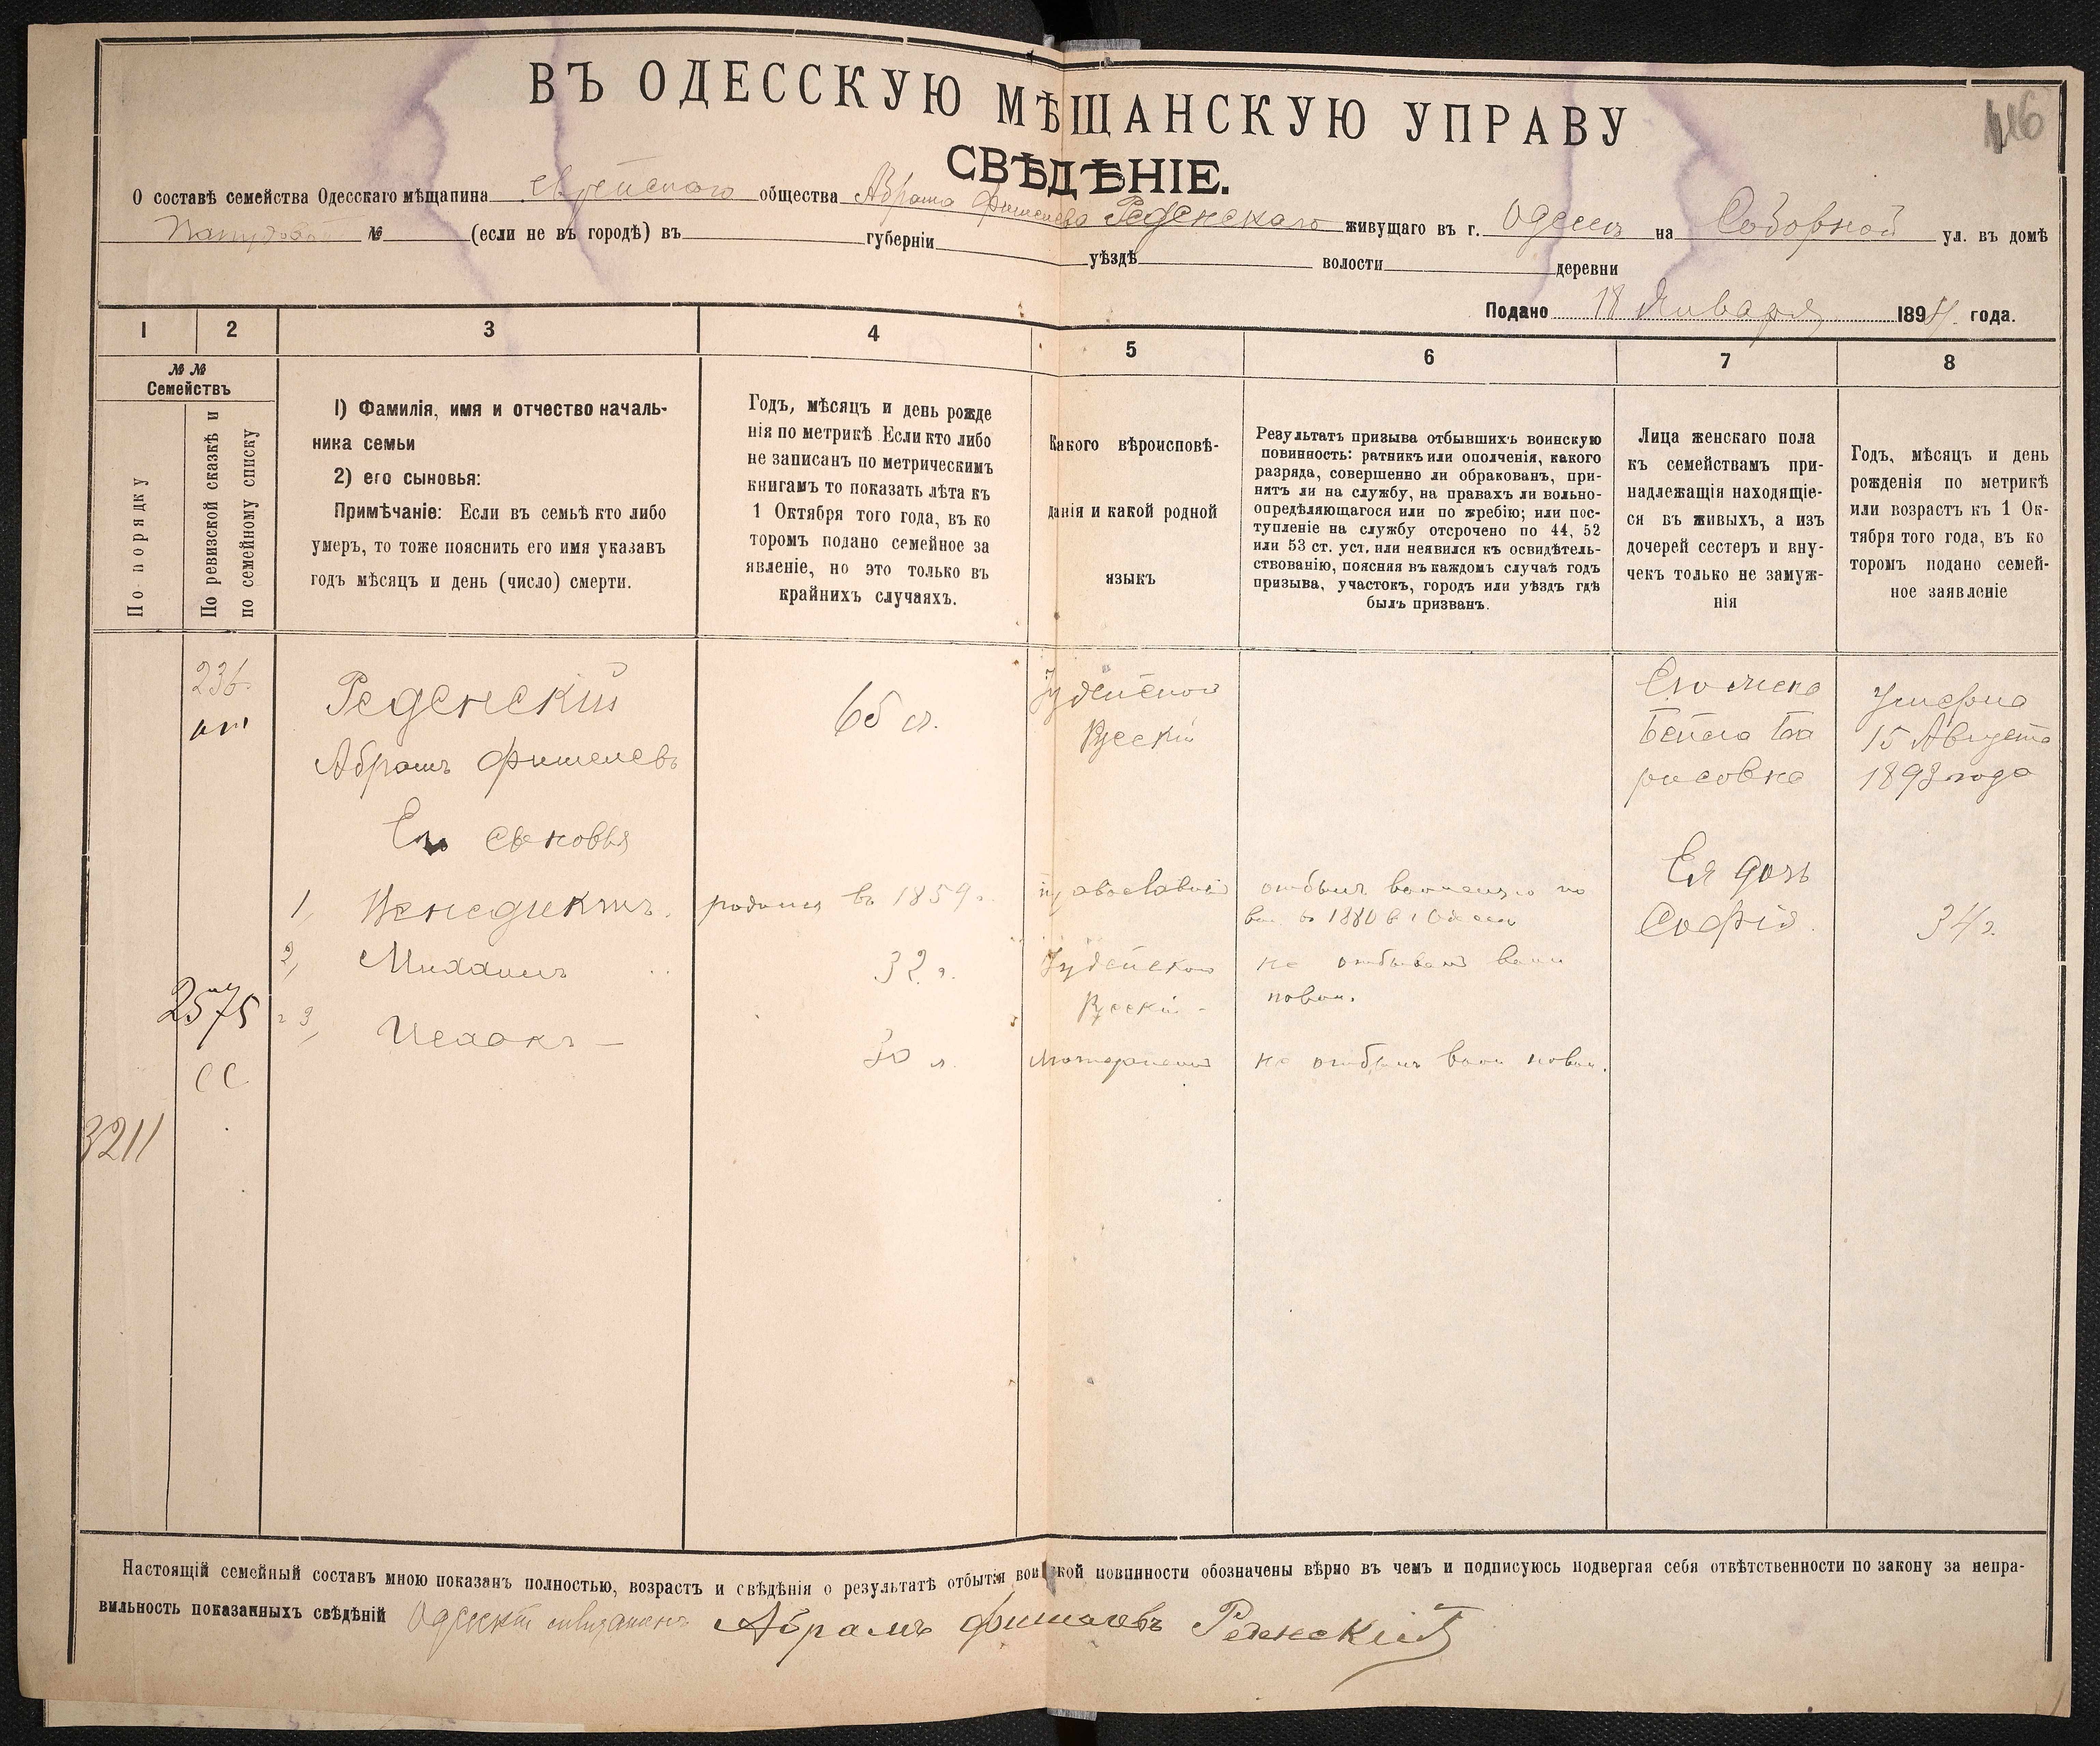 146
ВЪ ОДЕССКУЮ МѢЩАНСКУЮ УПРАВУ
СВѢДѢНІЕ.
О составѣ семейства Одесскаго мѣщанина еврейскаго общества Абрама Фишелева Реденскаго живущаго въ г. Одессѣ на Соборной ул. въ домѣ
№ (если не въ городѣ) въ губерніи уѣздѣ волости деревни
Подано 18 Января 1894. года.
1 2 3 4 5 6 7 8
№№
Семействъ
По порядку
По ревизской сказкѣ и
по семейному списку
1) Фамилія, имя и отчество началь-
ника семьи
2) его сыновья:
Примѣчаніе: Если въ семьѣ кто либо
умеръ, то тоже пояснить его имя указавъ
годъ мѣсяцъ и день (число) смерти.
Годъ, мѣсяцъ и день рожде
нія по метрикѣ Если кто либо
не записанъ по метрическимъ
книгамъ то показать лѣта къ
1 Октября того года, въ ко
торомъ подано семейное за
явленіе, но это только въ
крайнихъ случаяхъ.
Какого вѣроисповѣ-
данія и какой родной
языкъ
Результатъ призыва отбывшихъ воинскую
повинность: ратникъ или ополченія, какого
разряда, совершенно ли обракованъ, при-
нятъ ли на службу, на правахъ ли вольно-
опредѣляющагося или по жребію; или пос-
тупленіе на службу отсрочено по 44, 52
или 53 ст. уст. или неявился къ освидѣтель-
ствованію, поясняя въ каждомъ случаѣ годъ
призыва, участокъ, городъ или уѣздъ гдѣ
былъ призванъ.
Лица женскаго пола
къ семействамъ при-
надлежащія находящіе-
ся въ живыхъ, а изъ
дочерей сестеръ и вну-
чекъ только не замуж-
нія
Годъ, мѣсяцъ и день
рожденія по метрикѣ
или возрастъ къ 1 Ок-
тября того года, въ ко
торомъ подано семей-
ное заявленіе
236
Реденскій
Абрамъ Фишелевъ
65 л.
Іудейскаго
Русскій
Его жена
Бейла Бо
рисовна
Умерла
15 Августа
1893 года
Его сыновья
1, Венедиктъ. родился въ 1859 г. православный отбылъ воинскую по
вин. въ 1880 въ г. Одессѣ
Ея дочь
Софія. 34 г.
2, Михаилъ 32 г. Іудейскаго
Русскій не отбывалъ воин
повин.
2575
СС
3, Исаакъ — 30 л. не отбылъ воин повин.
3211
Настоящій семейный составъ мною показанъ полностью, возрастъ и свѣдѣнія о результатѣ отбытія воинской повинности обозначены вѣрно въ чемъ и подписуюсь подвергая себя отвѣтственности по закону за непра-
вильность показанныхъ свѣдѣній Одесскій мѣщанинъ Абрамъ Фишелевъ Реденскій